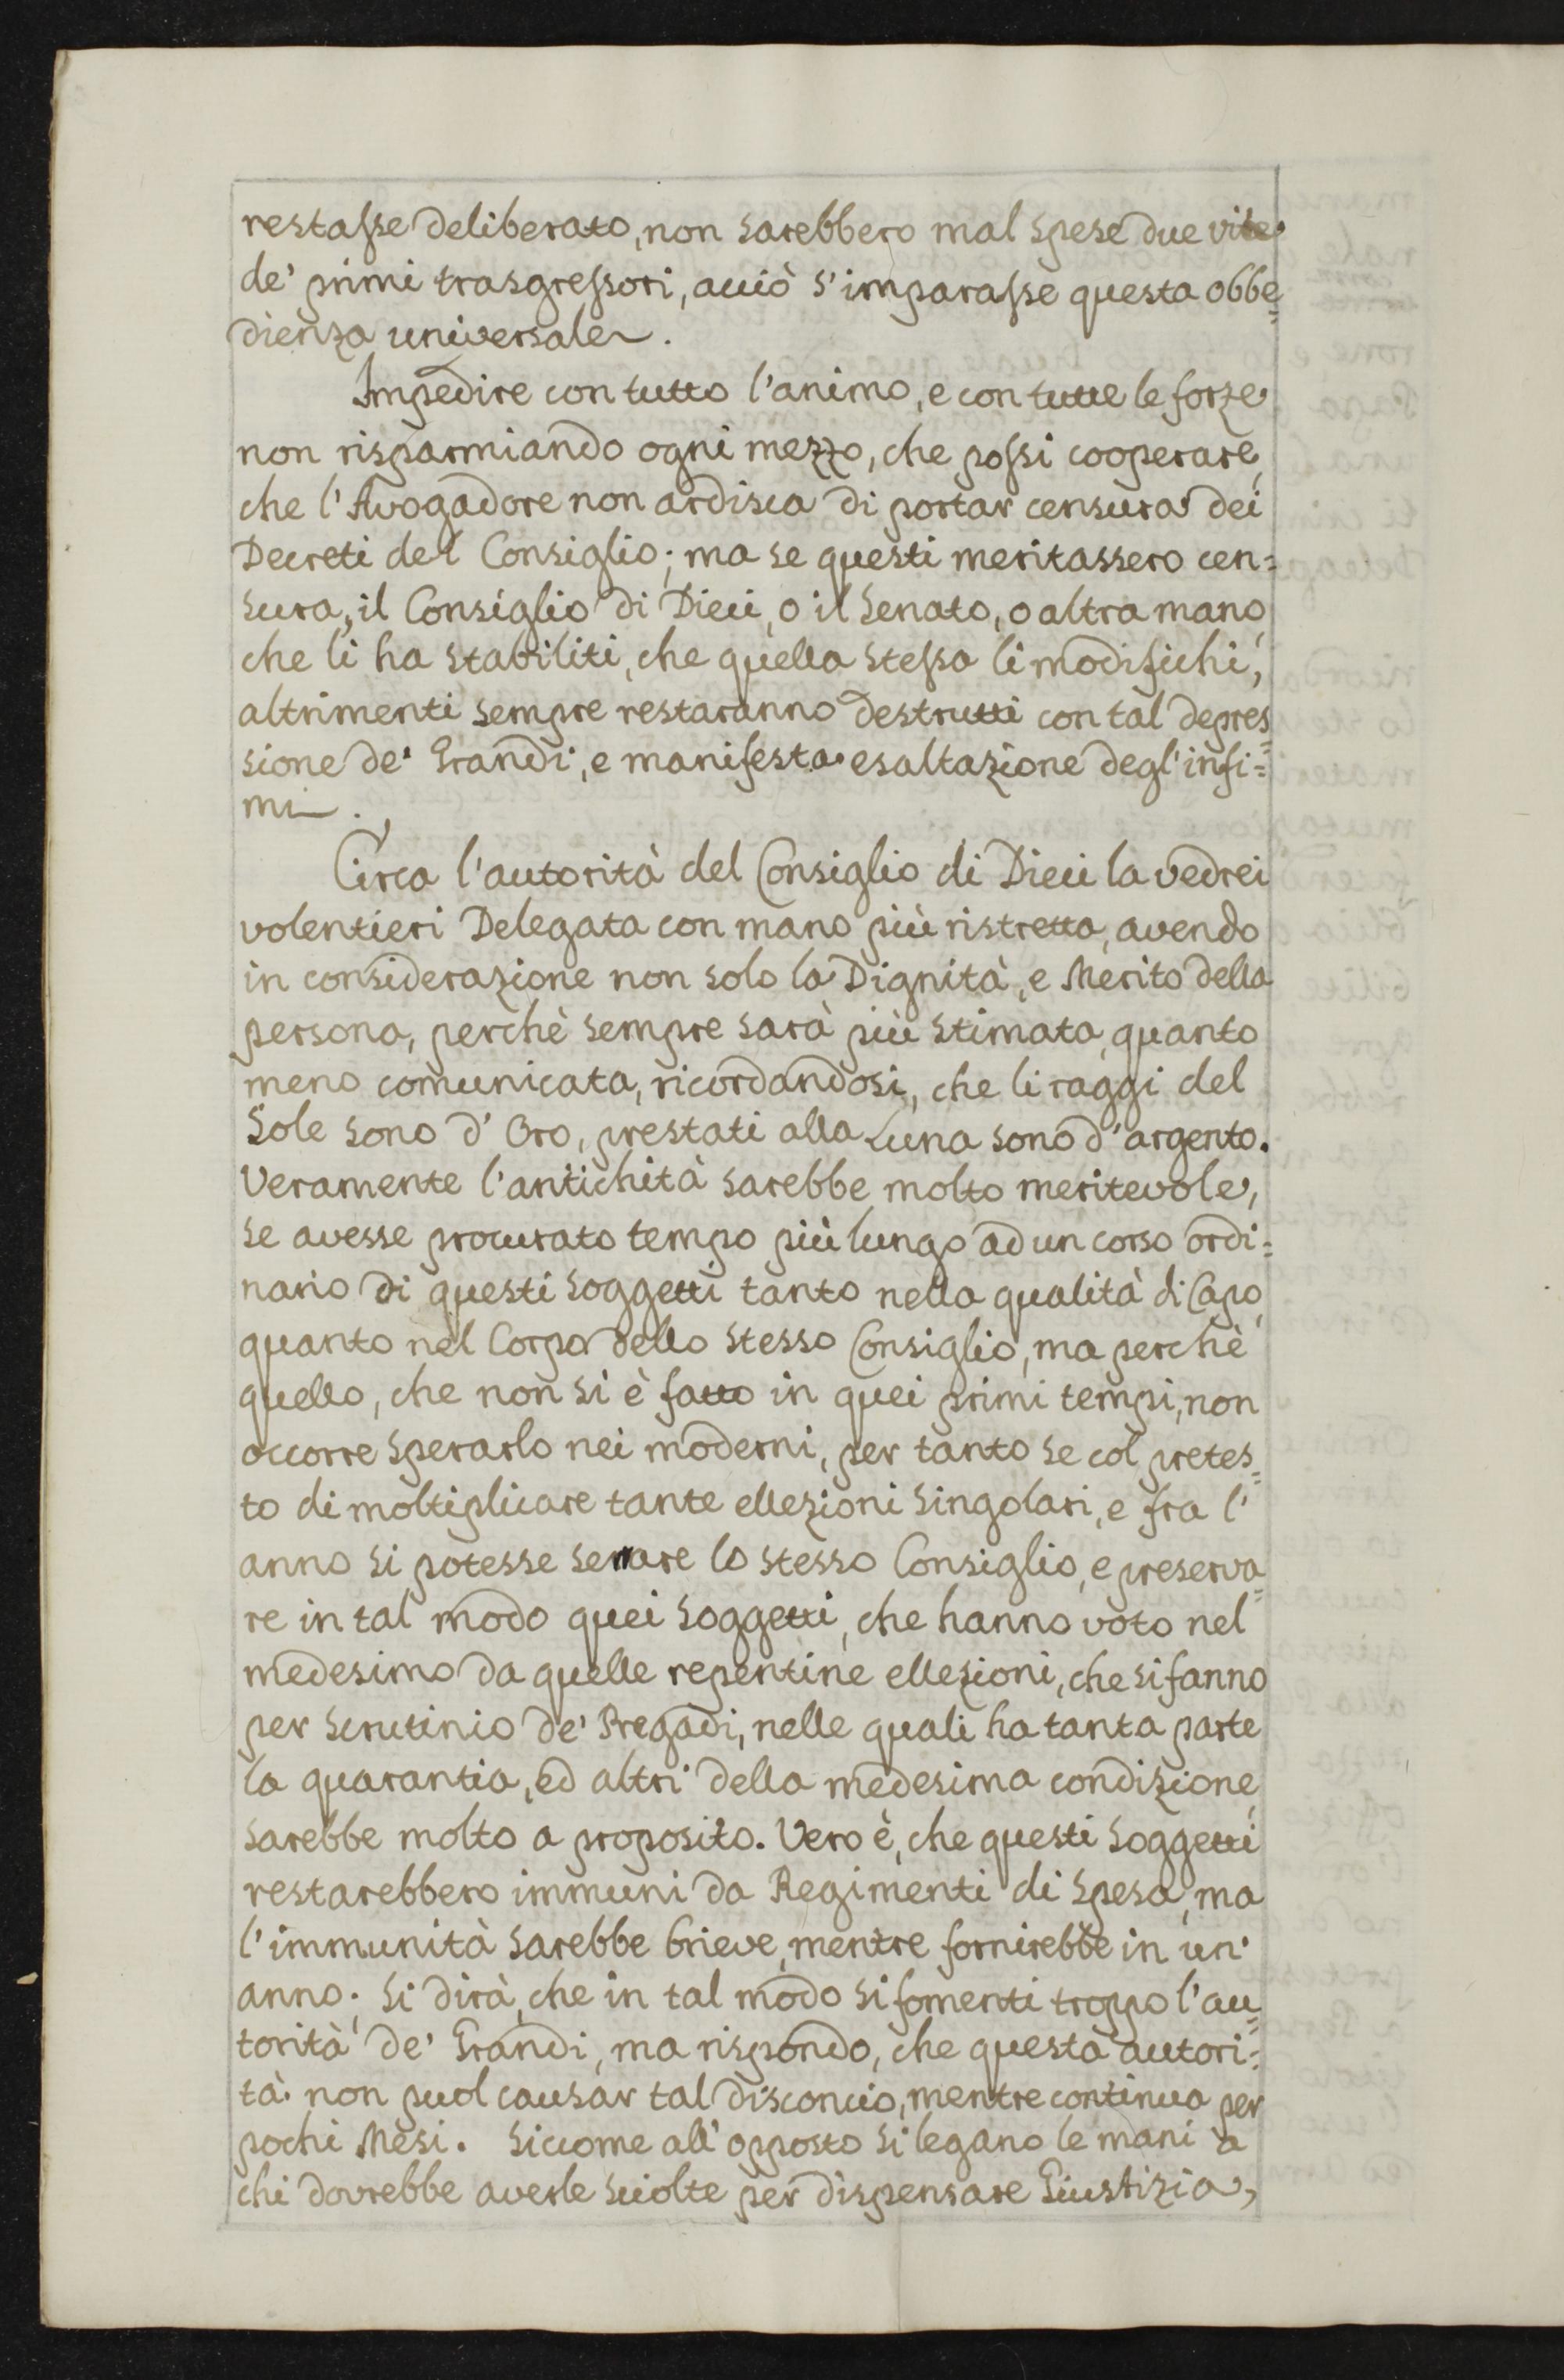 restasse deliberato, non sarebbero mal spese due vite
de' primi trasgressori, acciò s'imparasse questa obbe=
dienza universale.
Impedire con tutto l'animo, e con tutte le forze
non risparmiando ogni mezzo, che possi cooperare,
che l'Avogadore non ardisca di portar censura dei
Decreti del Consiglio; ma se questi meritassero cen=
sura, il Consiglio di Dieci, o il Senato, o altra mano,
che li ha stabiliti, che quella stessa li modifichi;
altrimenti sempre restaranno destrutti con tal depres=
sione de' Grandi, e manifesta esaltazione degl'infi=
mi.
Circa l'autorità del Consiglio di Dieci la vedrei
volentieri Delegata con mano più ristretta, avendo
in considerazione non solo la Dignità, e Merito della
persona, perchè sempre sarà più stimata, quanto
meno comunicata, ricordandosi, che li raggi del
Sole sono d'Oro, prestati alla Luna sono d'argento.
Veramente l'antichità sarebbe molto meritevole,
se avesse procurato tempo più lungo ad un corso ordi=
nario di questi soggetti tanto nella qualità di Capo,
quanto nel Corpo dello stesso Consiglio, ma perchè
quello, che non si è fatto in quei primi tempi, non
occorre sperarlo nei moderni, per tanto se col pretes=
to di moltiplicare tante ellezioni singolari, e fra l'
anno si potesse serrare lo stesso Consiglio, e preserva=
re in tal modo quei soggetti, che hanno voto nel
medesimo da quelle repentine ellezioni, che si fanno
per scrutinio de' Pregadi, nelle quali ha tanta parte
la quarantia, ed altri della medesima condizione,
sarebbe molto a proposito. Vero è, che questi soggetti
restarebbero immuni da Regimenti di spesa, ma
l'immunità sarebbe brieve, mentre fornirebbe in un'
anno. Si dirà, che in tal modo si fomenti troppo l'au=
torità de' Grandi, ma rispondo, che questa autori=
tà non puol causar tal disconcio, mentre continua per
pochi Mesi. Siccome all'opposto si legano le mani a
chi dovrebbe averle sciolte per dispensare Giustizia,